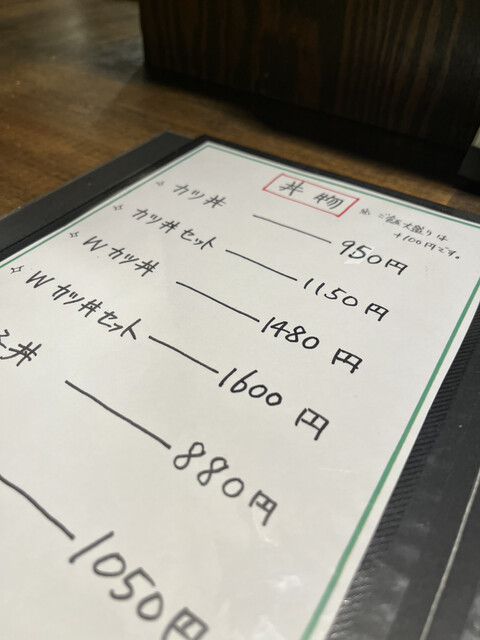 丼物
※ご飯大盛りは
+100円です。
カツ丼 950円
カツ丼セット 1150円
Wカツ丼 1480円
Wカツ丼セット 1600円
丼 880円
1050円